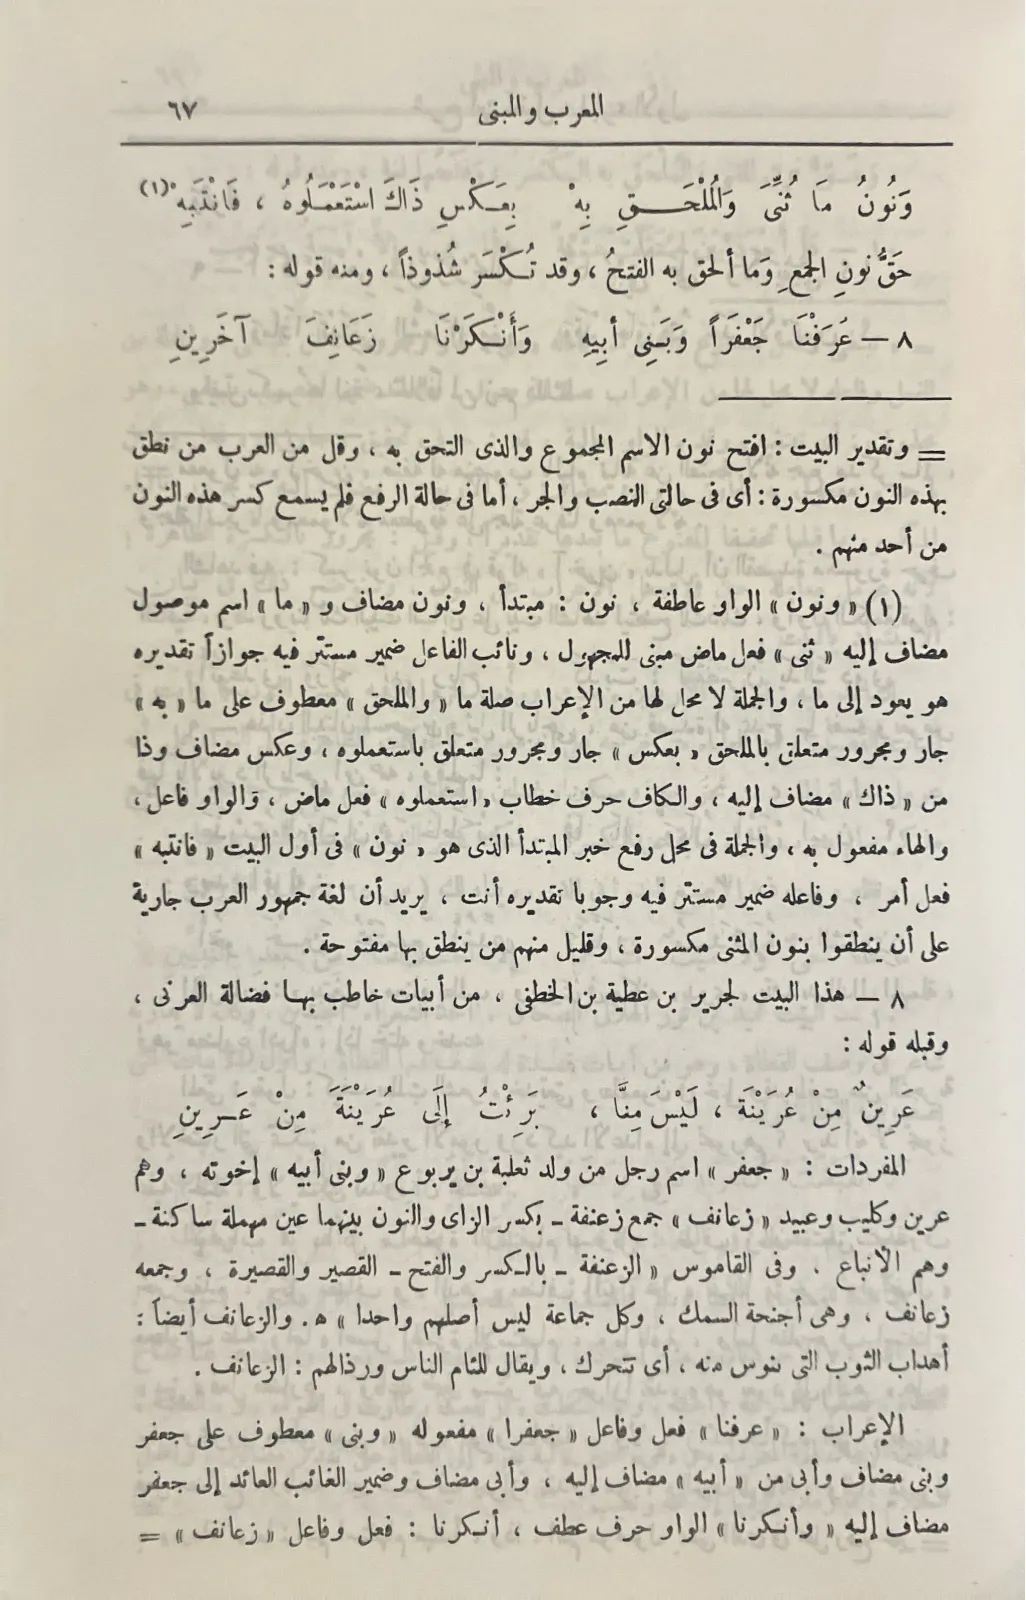 المعرب والمبنى ٦٧
وَنُونُ مَا ثُنِّىَ وَالْمُلْحَقِ بِهْ بِعَكْسِ ذَاكَ اسْتَعْمَلُوهُ ، فَانْتَبِهْ (١)
حَقُّ نونِ الجمعِ وَما ألحق به الفتحُ ، وقد تُكْسَر شُذوذاً ، ومنه قوله :
٨ — عَرَفْنَا جَعْفَرَاً وَبَنِى أبِيهِ وَأَنْكَرْنَا زَعَانِفَ آخَرِينِ
= وتقدير البيت : افتح نون الاسم المجموع والذى التحق به ، وقل من العرب من نطق
بهذه النون مكسورة : أى فى حالتى النصب والجر ، أما فى حالة الرفع فلم يسمع كسر هذه النون
من أحد منهم .
(١) « ونون » الواو عاطفة ، نون : مبتدأ ، ونون مضاف و « ما » اسم موصول
مضاف إليه « ثنى » فعل ماض مبنى للمجهول ، ونائب الفاعل ضمير مستتر فيه جوازاً تقديره
هو يعود إلى ما ، والجملة لا محل لها من الإعراب صلة ما « والملحق » معطوف على ما « به »
جار ومجرور متعلق بالملحق « بعكس » جار ومجرور متعلق باستعملوه ، وعكس مضاف وذا
من « ذاك » مضاف إليه ، والكاف حرف خطاب « استعملوه » فعل ماض ، والواو فاعل ،
والهاء مفعول به ، والجملة فى محل رفع خبر المبتدأ الذى هو « نون » فى أول البيت « فانتبه »
فعل أمر ، وفاعله ضمير مستتر فيه وجوبا تقديره أنت ، يريد أن لغة جمهور العرب جارية
على أن ينطقوا بنون المثنى مكسورة ، وقليل منهم من ينطق بها مفتوحة .
٨ — هذا البيت لجرير بن عطية بن الخطفى ، من أبيات خاطب بها فضالة العرنى ،
وقبله قوله :
عَرِينٌ مِنْ عُرَيْنَةَ ، لَيْسَ مِنَّا ، بَرِئْتُ إِلَى عُرَيْنَةَ مِنْ عَرِينِ
المفردات : « جعفر » اسم رجل من ولد ثعلبة بن يربوع « وبنى أبيه » إخوته ، وهم
عرين وكليب وعبيد « زعانف » جمع زعنفة ــ بكسر الزاى والنون بينهما عين مهملة ساكنة ــ
وهم الأتباع ، وفى القاموس « الزعنفة ــ بالكسر والفتح ــ القصير والقصيرة ، وجمعه
زعانف ، وهى أجنحة السمك ، وكل جماعة ليس أصلهم واحدا » ه . والزعانف أيضاً :
أهداب الثوب التى تنوس منه ، أى تتحرك ، ويقال للئام الناس ورذالهم : الزعانف .
الإعراب : « عرفنا » فعل وفاعل « جعفرا » مفعوله « وبنى » معطوف على جعفر
وبنى مضاف وأبى من « أبيه » مضاف إليه ، وأبى مضاف وضمير الغائب العائد إلى جعفر
مضاف إليه « وأنكرنا » الواو حرف عطف ، أنكرنا : فعل وفاعل « زعانف » =